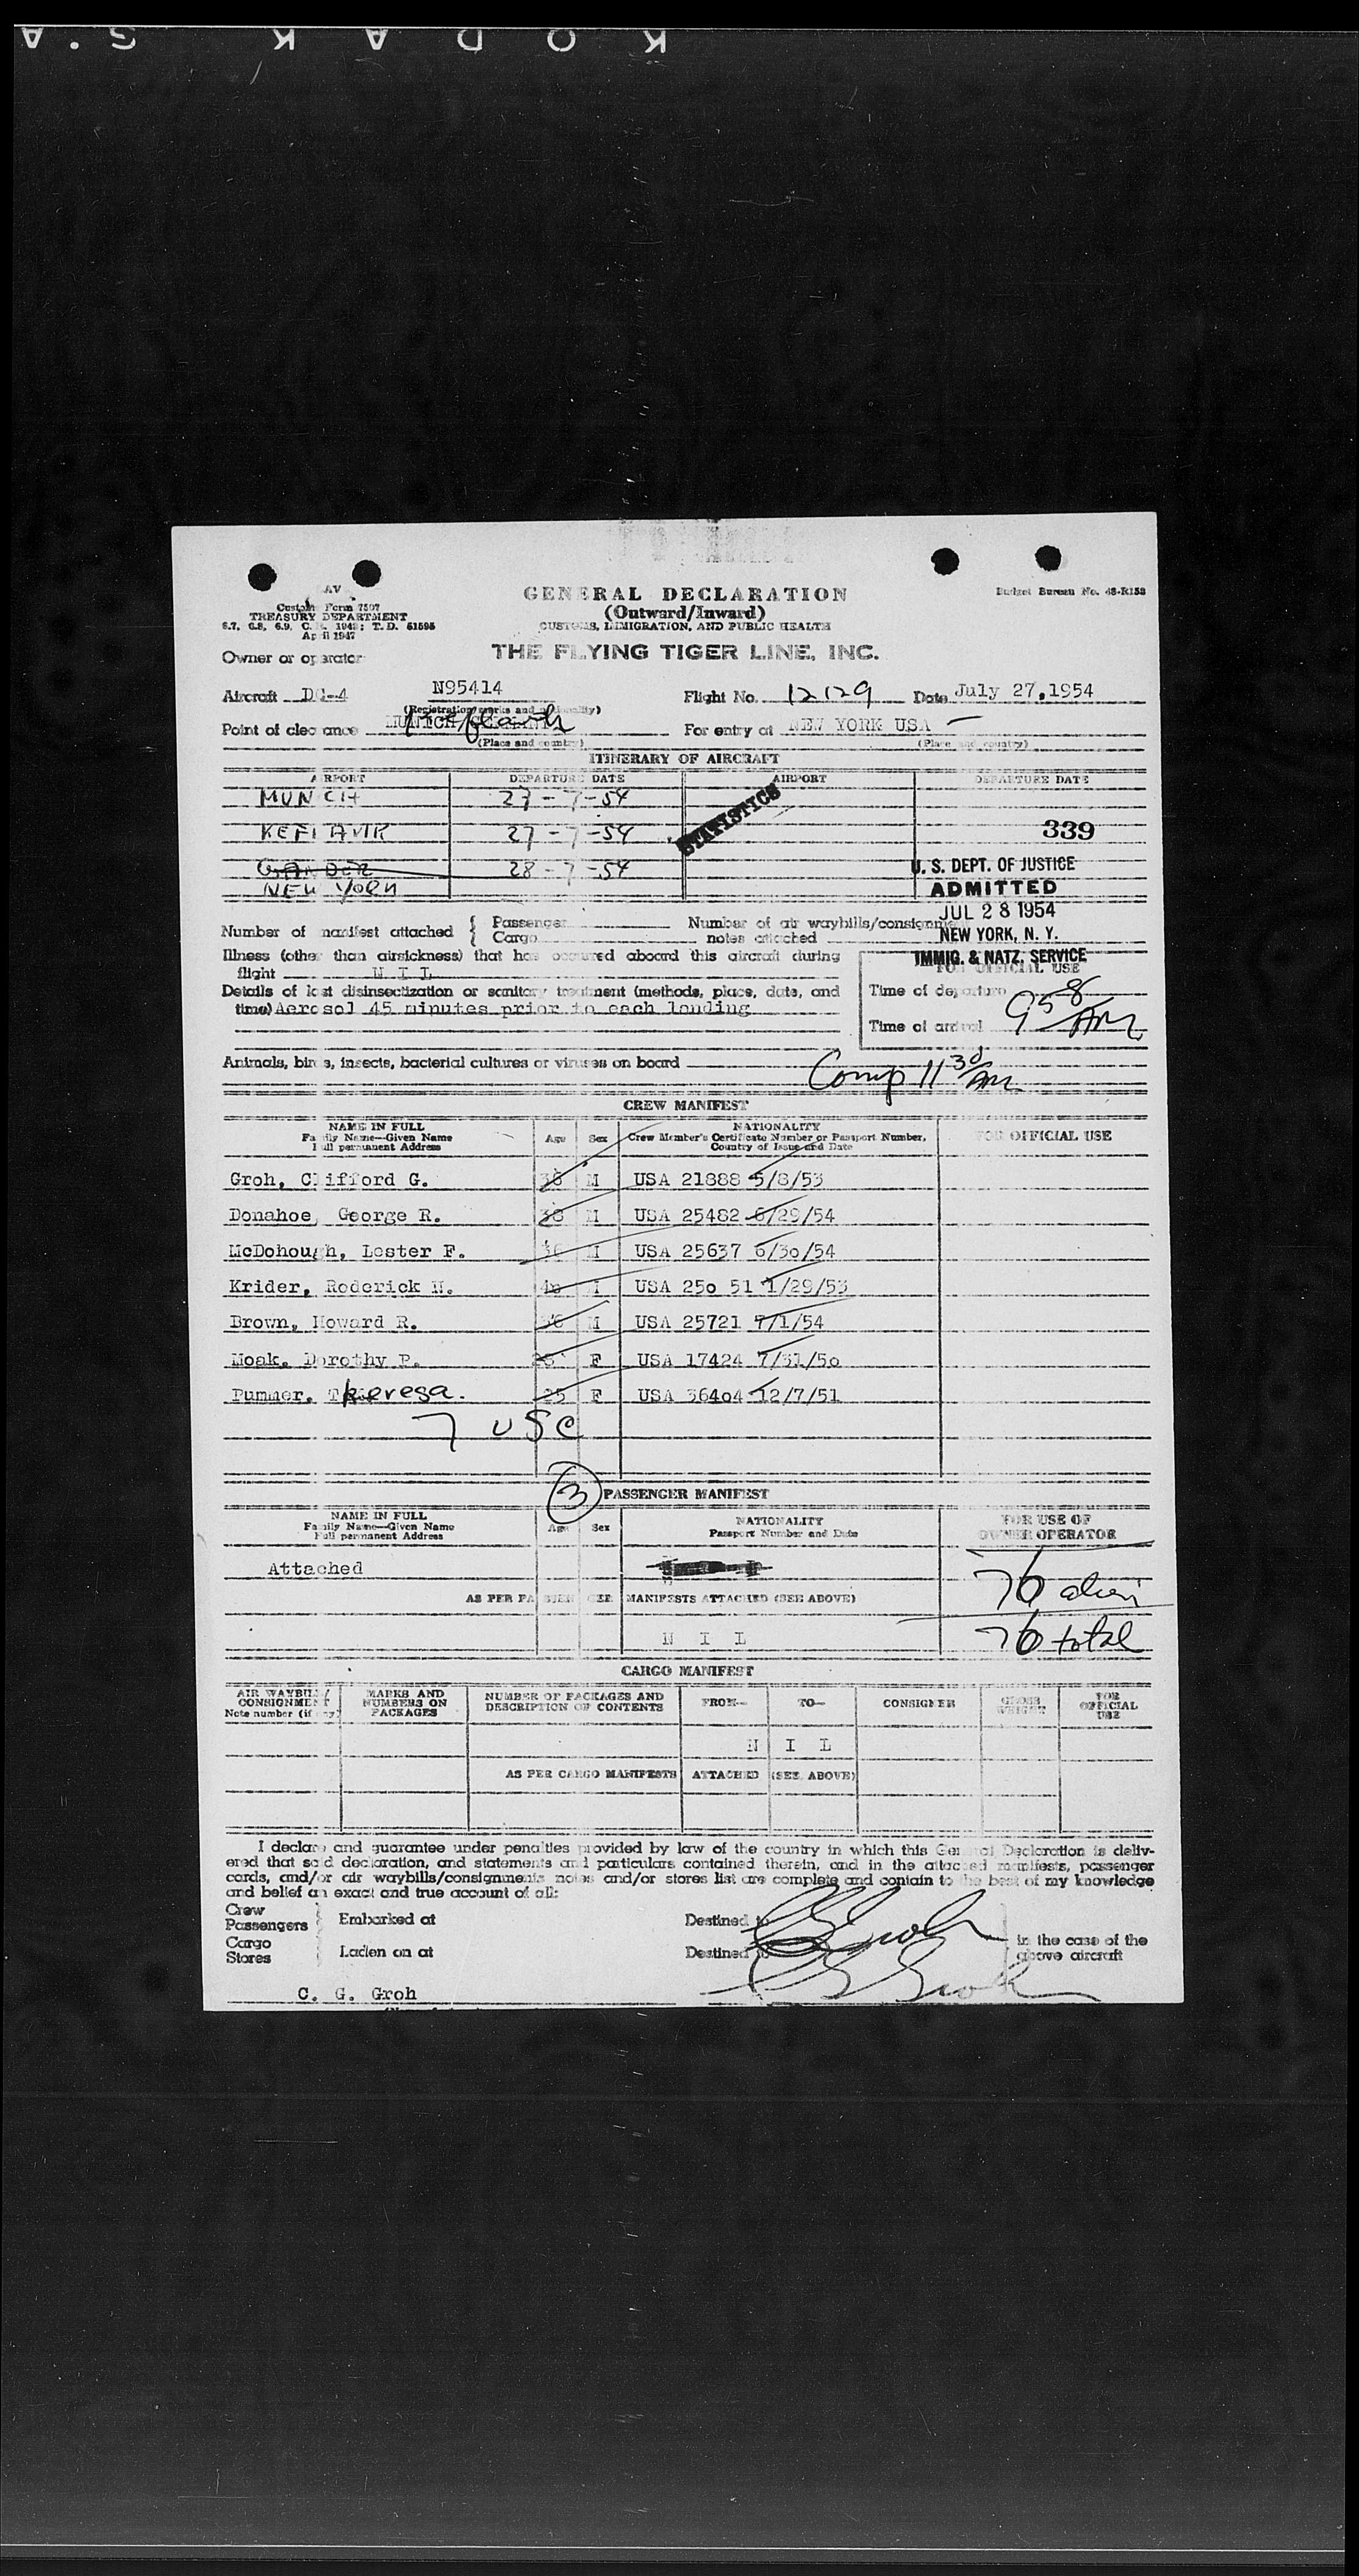 KODAK S.A
AV
Customs Form 7507
TREASURY DEPARTMENT
6.7, 6.8, 6.9, C. R. 1943; T. D. 51595
April 1947
GENERAL DECLARATION
(Outward/Inward)
CUSTOMS, IMMIGRATION, AND PUBLIC HEALTH
Budget Bureau No. 48-R153
Owner or operator
THE FLYING TIGER LINE, INC.
Aircraft DC-4 N95414 Flight No. 12129 Date July 27, 1954
(Registration marks and nationality)
Point of clearance MUNICH For entry at NEW YORK USA
(Place and country) (Place and country)
ITINERARY OF AIRCRAFT
AIRPORT DEPARTURE DATE AIRPORT DEPARTURE DATE
MUNCIH 27-7-54
STATISTICS
KEFLAVIK 27-7-54 339
GANDER 28-7-54
NEW YORK
U. S. DEPT. OF JUSTICE
ADMITTED
JUL 28 1954
NEW YORK, N. Y.
IMMIG. & NATZ. SERVICE
Number of manifest attached { Passenger Number of air waybills/consignment
Cargo notes attached
Illness (other than airsickness) that has occured aboard this aircraft during
flight N I L
FOR OFFICIAL USE
Details of last disinsectization or sanitary treatment (methods, place, date, and
time) Aerosol 45 minutes prior to each landing
Time of departure
Time of arrival 9 58 AM
Animals, birds, insects, bacterial cultures or viruses on board
Comp 11 30 AM
CREW MANIFEST
NAME IN FULL
Family Name—Given Name
Full permanent Address
Age Sex
NATIONALITY
Crew Member's Certificate Number or Passport Number,
Country of Issue and Date
FOR OFFICIAL USE
Groh, Clifford G. 38 M USA 21888 5/8/53
Donahoe, George R. 38 M USA 25482 6/29/54
McDohough, Lester F. M USA 25637 6/3o/54
Krider, Roderick M USA 25o 51 1/29/53
Brown, Howard R. M USA 25721 7/1/54
Moak, Dorothy P. F USA 17424 7/31/5o
Pummer, Theresa. 25 F USA 364o4 12/7/51
7 USC
3
PASSENGER MANIFEST
NAME IN FULL
Family Name—Given Name
Full permanent Address
Age Sex
NATIONALITY
Passport Number and Date
FOR USE OF
OWNER OPERATOR
Attached
76 alien
AS PER PASSENGER MANIFESTS ATTACHED (SEE ABOVE)
N I L
76 total
CARGO MANIFEST
AIR WAYBILL/
CONSIGNMENT
Note number (if any)
MARKS AND
NUMBERS ON
PACKAGES
NUMBER OF PACKAGES AND
DESCRIPTION OF CONTENTS
FROM— TO— CONSIGNEE
GROSS
WEIGHT
FOR
OFFICIAL
USE
N I L
AS PER CARGO MANIFESTS ATTACHED (SEE ABOVE)
I declare and guarantee under penalties provided by law of the country in which this General Declaration is deliv-
ered that said declaration, and statements and particulars contained therein, and in the attached manifests, passenger
cards, and/or air waybills/consignments notes and/or stores list are complete and contain to the best of my knowledge
and belief an exact and true account of all:
Crew
Passengers Embarked at Destined to
Cargo
Stores Laden on at Destined to
in the case of the
above aircraft
C. G. Groh